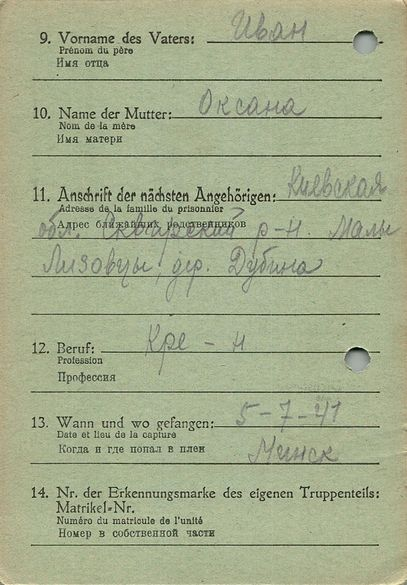 9. Vorname des Vaters: Иван
Prénom du père
Имя отца
10. Name der Mutter: Оксана
Nom de la mère
Имя матери
11. Anschrift der nächsten Angehörigen: Киевская
Adresse de la famille du prisonnier
Адрес ближайших родственников
обл. Сквирский р-н. Малы
Лизовцы, дер. Дубина
12. Beruf: Кре-н
Profession
Профессия
13. Wann und wo gefangen: 5-7-41
Date et lieu de la capture
Когда и где попал в плен
Минск
14. Nr. der Erkennungsmarke des eigenen Truppenteils:
Matrikel-Nr.
Numéro du matricule de l'unité
Номер в собственной части